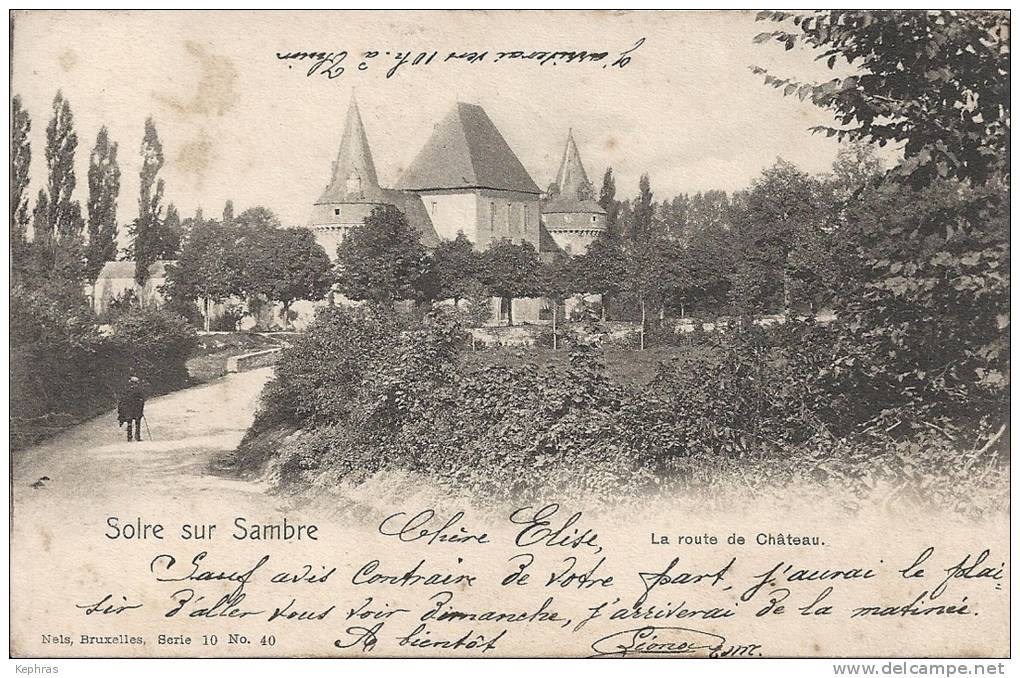 J'arriverai vers 10 h. a Thuin
Solre sur Sambre
Chère Elise,
La route de Château.
Sauf avis Contraire de votre part, J'aurai le plai-
sir d'aller vous voir dimanche, j'arriverai de la matinée.
Nels, Bruxelles, Serie 10 No. 40
A bientôt
Kephras
http://www.delcampe.net